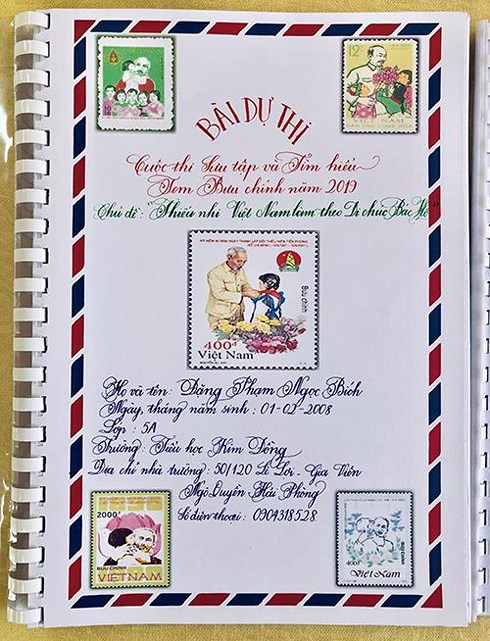 12 xu
12 xu
VIỆT NAM
BÀI DỰ THI
Cuộc thi Sưu tập và Tìm hiểu
Tem Bưu chính năm 2019
Chủ đề: "Thiếu nhi Việt Nam làm theo Di chúc Bác Hồ"
Bưu chính
400đ
Việt Nam
Họ và tên: Đặng Phạm Ngọc Bích
Ngày, tháng năm sinh: 01-02-2008
Lớp: 5A
Trường: Tiểu học Kim Đồng
Địa chỉ nhà trường: 50/120 Lê Lợi - Gia Viên
Ngô Quyền Hải Phòng
Số điện thoại: 0904318528
2000đ
BƯU CHÍNH
VIỆTNAM
400đ
BƯU CHÍNH
Việt Nam